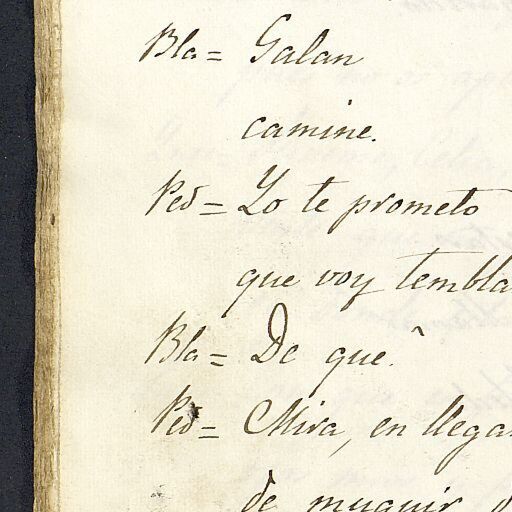 Bla= Galan
camine.
Ped= Yo te prometo
que voy tembla
Bla= De que?
Ped= Mira, en llega
de muquir